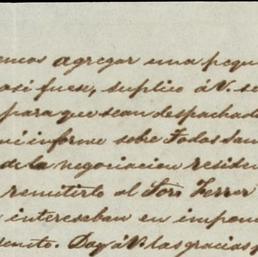 emos agregar una pequ
asi fuese, suplico á V. se
para que sean despachado
mi informe sobre Todos San
de la negociacion reside
remitirlo al Sor. Ferrer
interesaban en impon
Doy á V. las gracias p